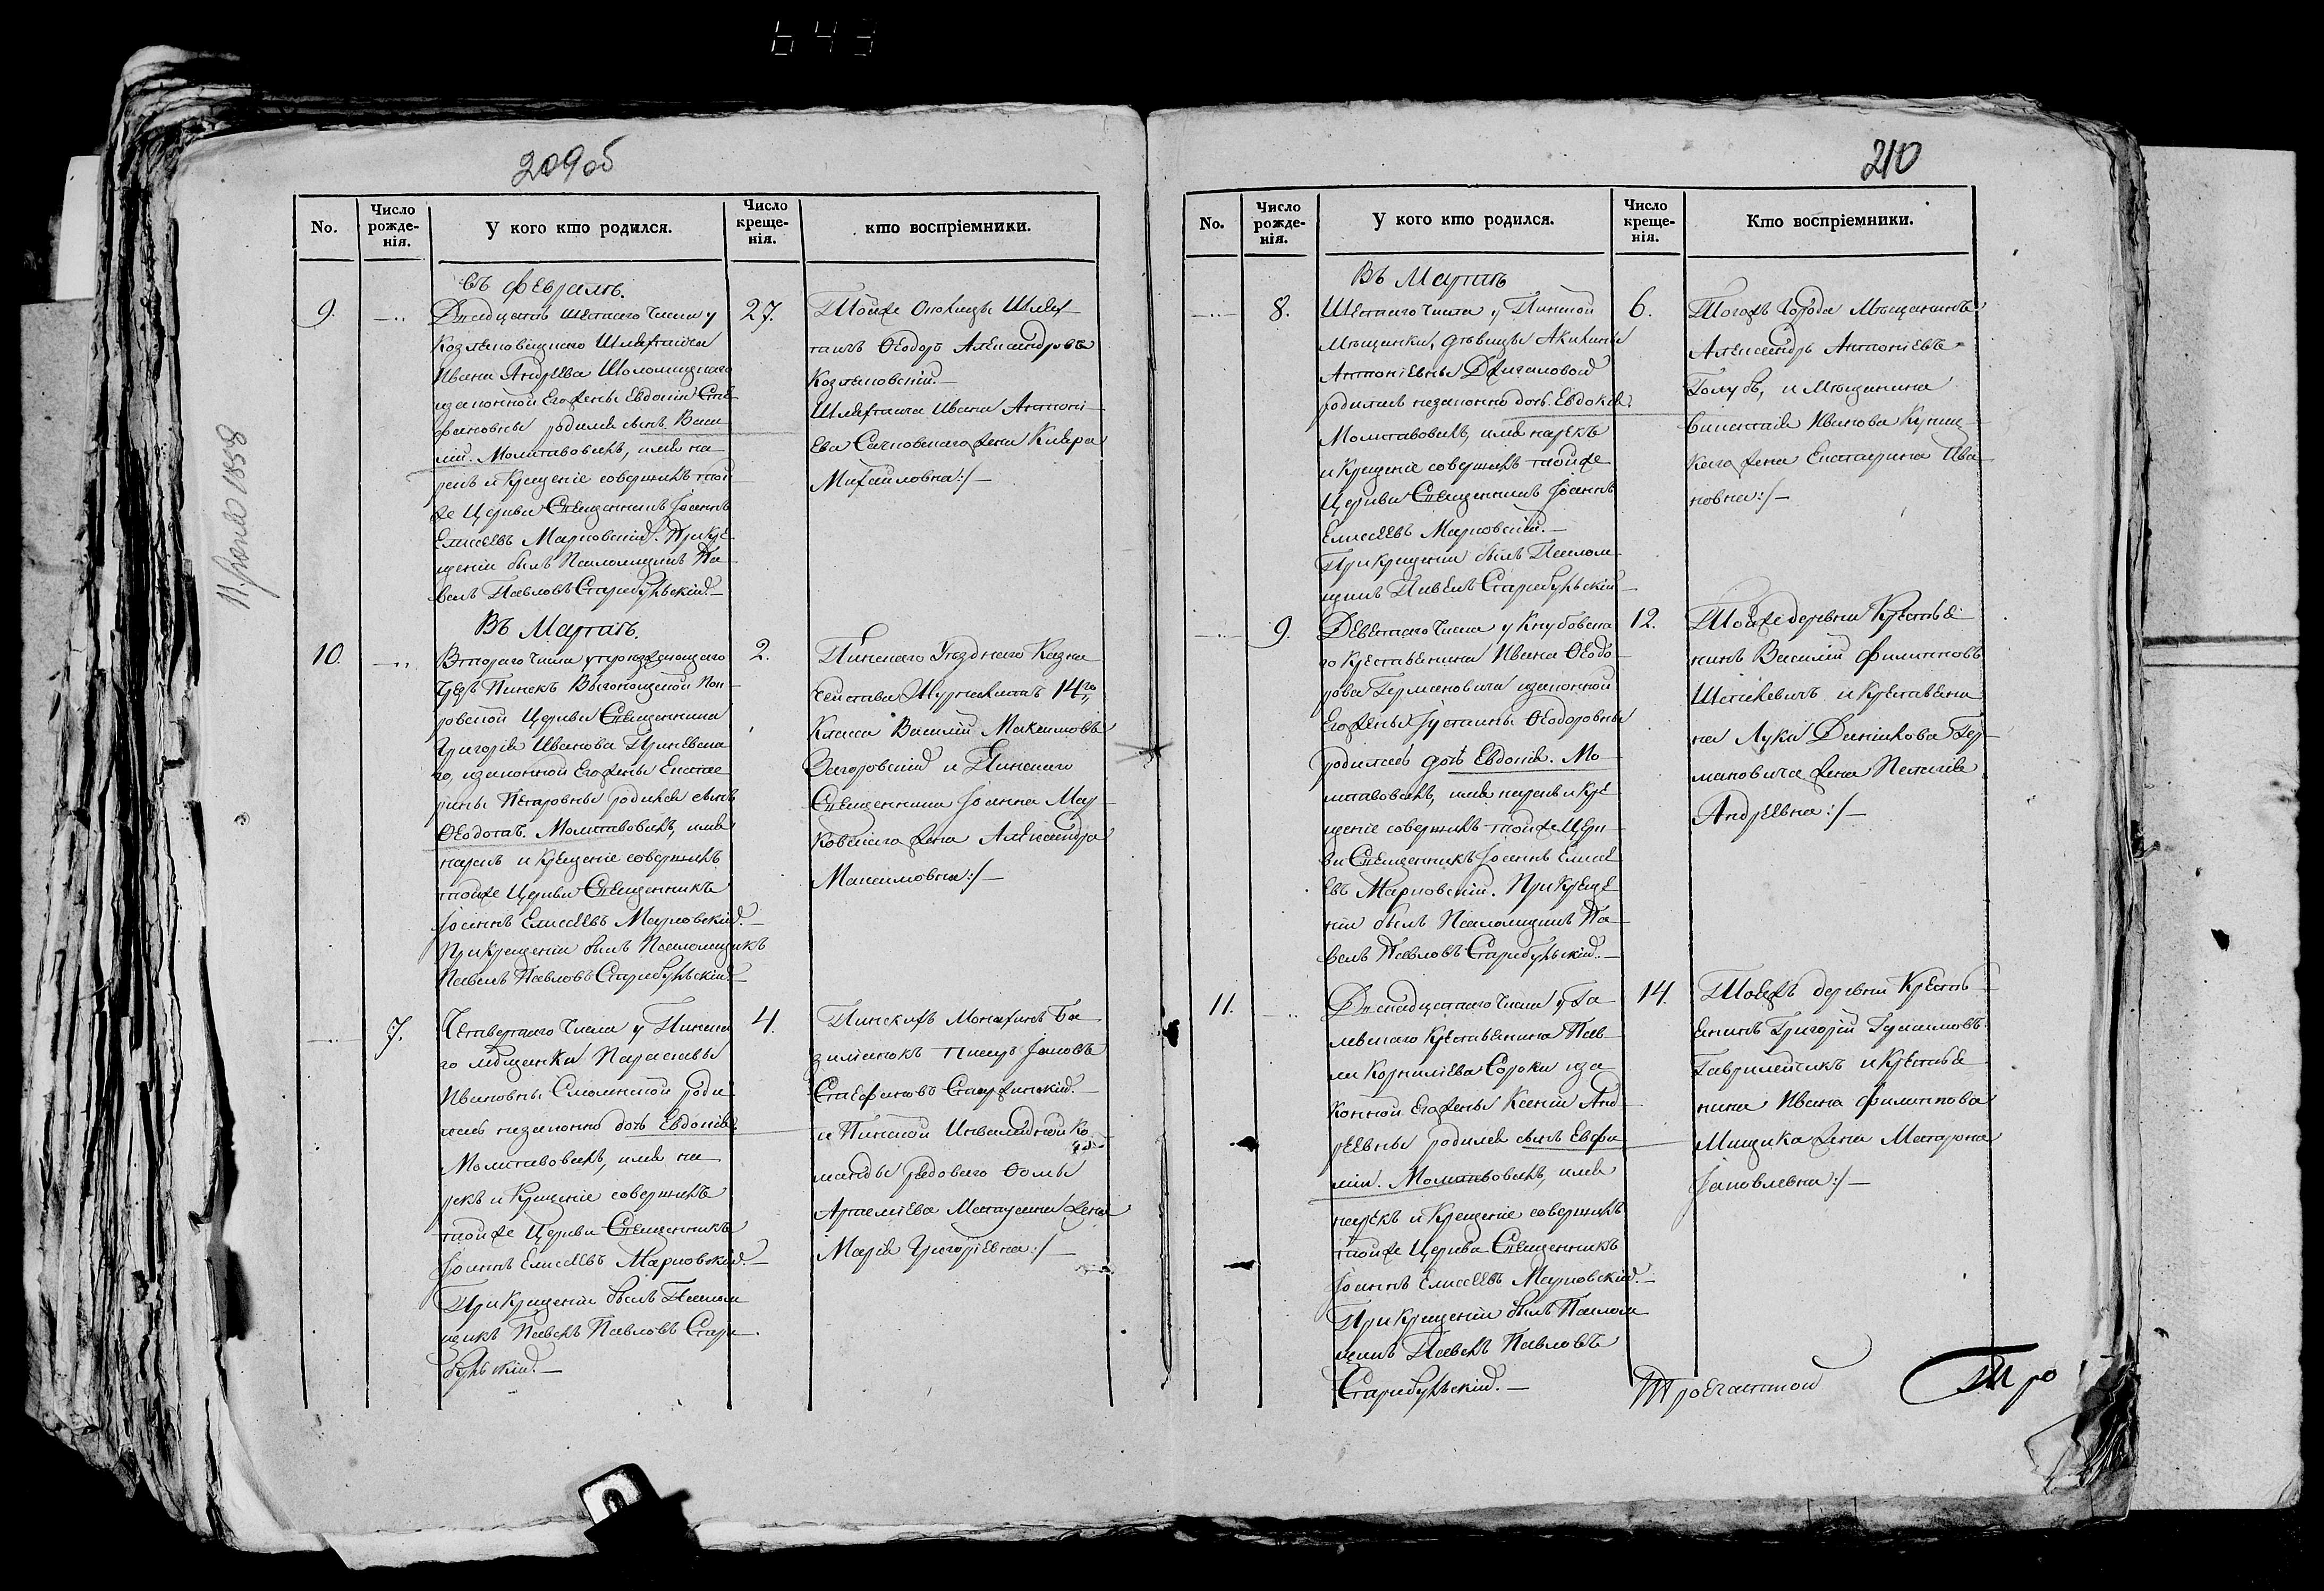 643
209об
No.
Число рожде-нія.
У кого кто родился.
Число креще-нія.
кто воспріемники.
въ Февралѣ.
9.
Двадцать шестаго числа у
Козляковицкаго Шляхтича
Ивана Андреева Шоломицкаго
изаконной Его жены Евдокіи Сте
фановны родился сынъ Васи
лій. Молитвовалъ, имя на
рекъ и Крещеніе совершилъ той
же Церкви Священникъ Іоаннъ
Елисеевъ Марковскій. При кре
щеніи былъ Псаломщикъ Па
велъ Павловъ Старибульскій.—
27.
Тойже Околицы Шлях
тичъ Ѳеодоръ Александровъ
Козляковскій.—
Шляхтича Ивана Антоні
ева Сачковскаго жена Клара
Михайловна:/—
Въ Мартѣ.
10.
Втораго числа у проѣзжающаго
Чрезъ Пинскъ Выгонощской Пок
ровской Церкви Священника
Григорія Иванова Гриневска
го, изаконной Его жены Екате
рины Петровны родился сынъ
Ѳеодотъ. Молитвовалъ, имя
нарекъ и Крещеніе совершилъ
тойже Церкви Священникъ
Іоаннъ Елисеевъ Марковскій.—
При Крещеніи былъ Псаломщикъ
Павелъ Павловъ Старибульскій.
2.
Пинскаго Уѣзднаго Казна
чейства Журналистъ 14го
Класса Василій Максимовъ
Загоровскій и Пинскаго
Священника Іоанна Мар
ковскаго жена Александра
Максимовна:/—
7.
Четвертаго числа у Пинска
го мѣщанки Параскевы
Ивановны Смолинской роди
лась незаконно дочь Евдокія.
Молитвовалъ, имя на
рекъ и Крещеніе совершилъ
тойже Церкви Священникъ
Іоаннъ Елисеевъ Марковскій.—
При Крещеніи былъ Псалом
щикъ Павелъ Павловъ Стари
бульскій.—
4.
Пинскихъ Монахинь Ба
зиліанокъ писарь Яковъ
Стефановъ Стаержинскій.—
и Пинской Инвалидной Ко
манды рядоваго Ѳомы
Артеміева Матусина жена
Марія Григоріевна:/—
11 Іюня 1858
210
No.
Число рожде-нія.
У кого кто родился.
Число креще-нія.
Кто воспріемники.
Въ Мартѣ
8.
Шестаго числа у Пинской
Мѣщанки, дѣвицы Акилины
Антоніевны Джигаловой
родилась незаконно дочь Евдокія.
Молитвовалъ, имя нарекъ
и Крещеніе совершилъ тойже
Церкви Священникъ Іоаннъ
Елисеевъ Марковскій.—
При Крещеніи былъ Псалом
щикъ Павелъ Старибульскій—
6.
Тогожъ Города Мѣщанинъ
Александръ Антоніевъ
Голубъ, и Мѣщанина
Ивинова Куниц
каго жена Екатерина Ива
новна:/—
9.
Девятаго числа у Кнубовска
го Крестьянина Ивана Ѳеодо
рова Германовича изаконной
Его жены Іустины Ѳеодоровны
родилась дочь Евдокія. Мо
литвовалъ, имя нарекъ и Кре
щеніе совершилъ тойже Церк
ви Священникъ Іоаннъ Елисе
евъ Марковскій. При Креще
ніи былъ Псаломщикъ Па
велъ Павловъ Старибульскій.—
12.
Тойже деревни Крестья
нинъ Василій Филиповъ
Шепелевичъ и Крестьяни
на Луки Данилова Гер
мановича жена Пелагія
Андреевна:/—
11.
Двенадцатаго числа у Га
левскаго Крестьянина Пав
ла Корниліева Сороки иза
конной Его жены Ксеніи Анд
реевны родился сынъ Евфи
мій. Молитвовалъ, имя
нарекъ и Крещеніе совершилъ
тойже Церкви Священникъ
Іоаннъ Елисеевъ Марковскій.—
При Крещеніи былъ Псалом
щикъ Павелъ Павловъ
Старибульскій.—
14.
Тоежъ деревни Кресть
янинъ Григорій Герасимовъ
Гаврилейчикъ и Крестья
нина Ивана Филипова
Мицика жена Матрона
Яковлевна:/—